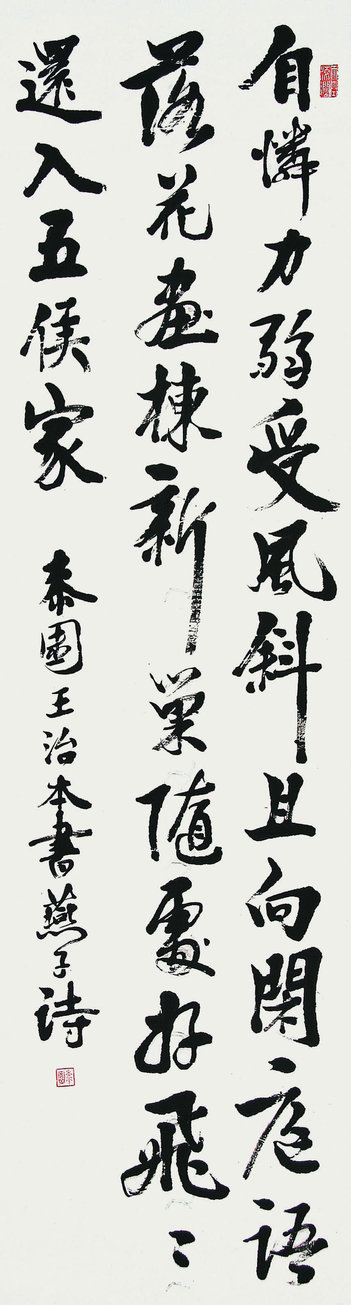 自憐力弱受風斜且向閑庭語
落花畫棟新巢隨處好飛〻
還入五侯家
泰園王治本書燕子詩